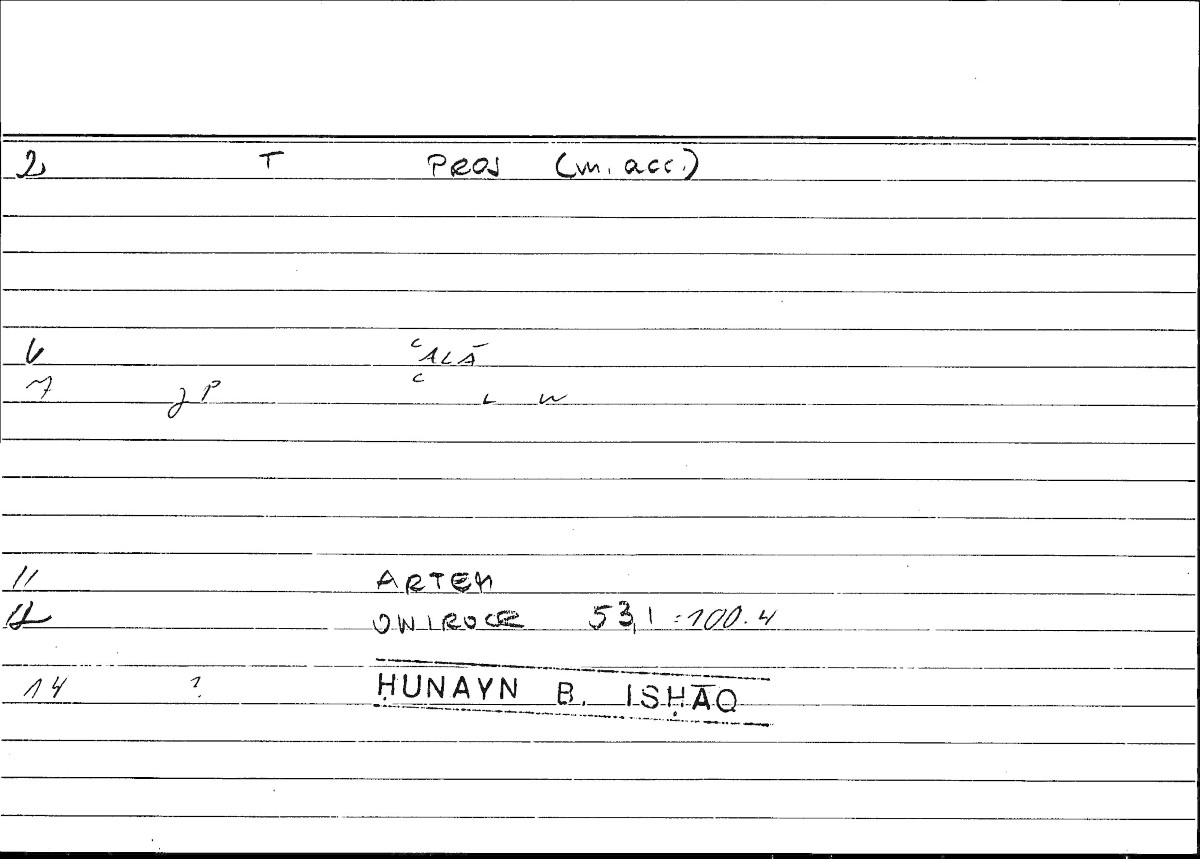 2 T PROS (m. acc.)
6 ʿALĀ
7 gP ʿ L W
11 ARTEM
12 ONIROCR 53,1 : 100.4
14 ? ḤUNAYN B. ISḤĀQ